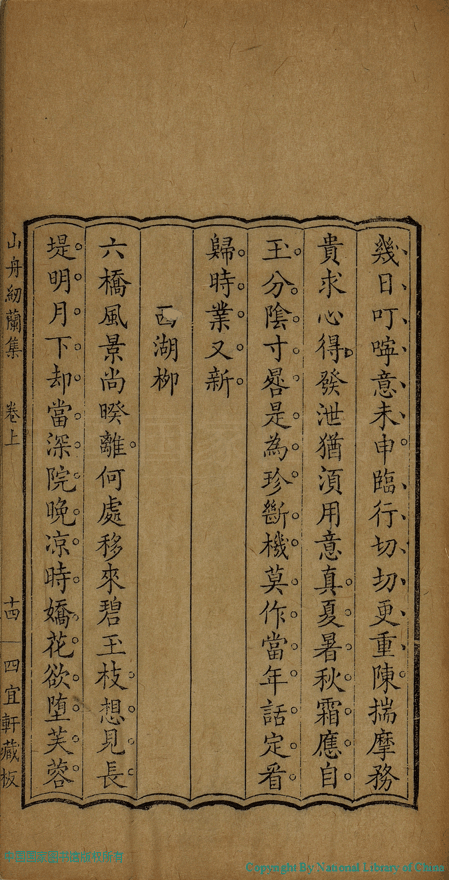 幾日叮嚀意未申臨行切切更重陳揣摩務
貴求心得發泄猶須用意真夏暑秋霜應自
玉分陰寸晷是為珍斷機莫作當年話定看
歸時業又新
西湖柳
六橋風景尚暌離何處移來碧玉枝想見長
堤明月下却當深院晚凉時嬌花欲墮芙蓉
山舟紉蘭集 卷上 十四 四宜軒藏板
Copyright By National Library of China